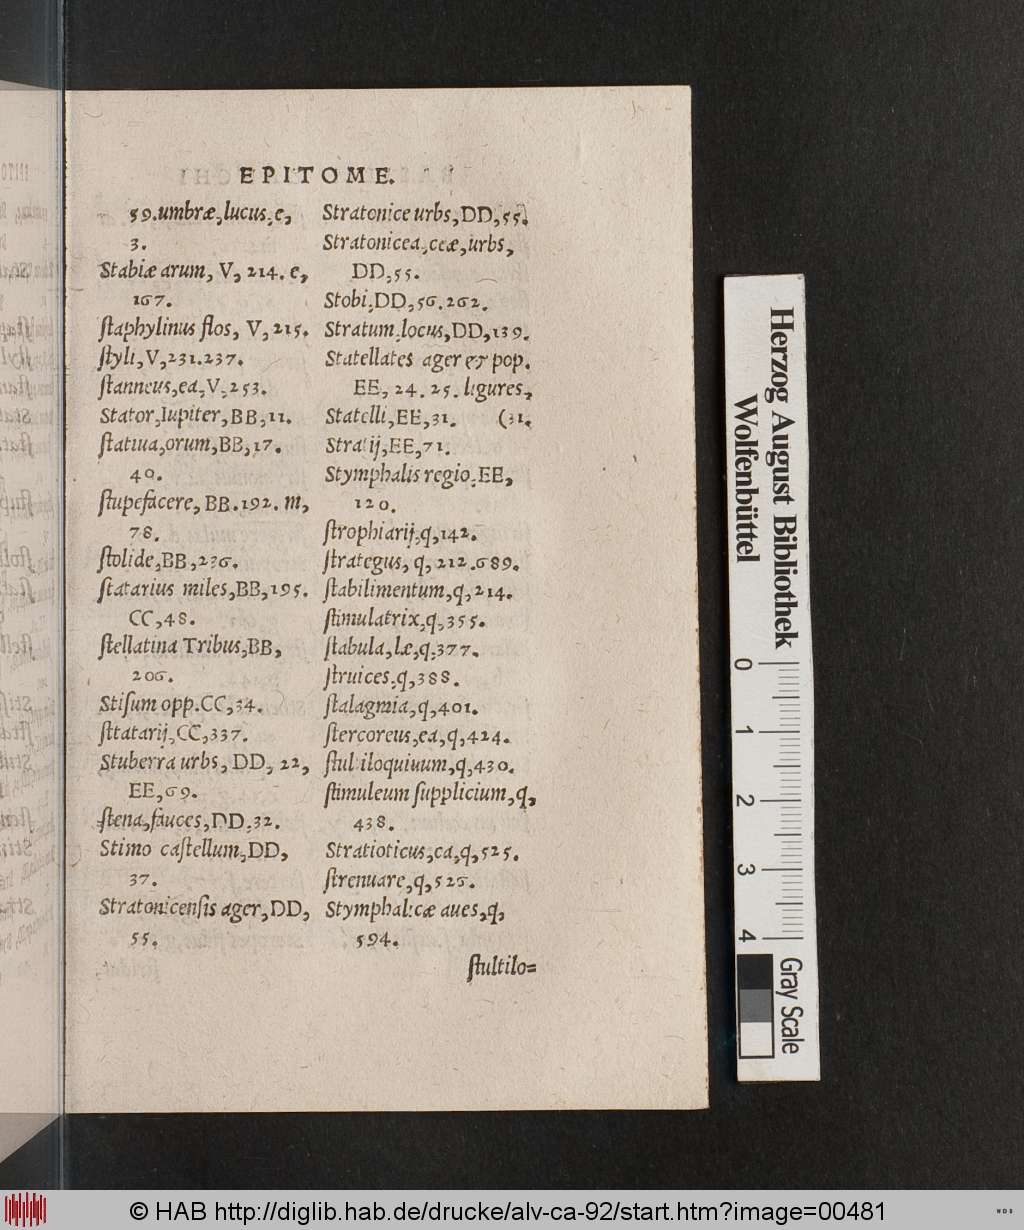 EPITOME.
59. umbræ, lucus, e,
3.
Stabiæ arum, V, 214. e,
167.
ſtaphylinus flos, V, 215.
ſtyli, V, 231.237.
ſtanneus, ea, V, 253.
Stator, Iupiter, BB, 11.
ſtatiua, orum, BB, 17.
40.
ſtupefacere, BB. 192. m,
78.
ſtolide, BB, 236.
ſtatarius miles, BB, 195.
CC, 48.
ſtellatina Tribus, BB,
206.
Stiſum opp. CC, 34.
ſttatarij, CC, 337.
Stuberra urbs, DD, 22,
EE, 69.
ſtena, fauces, DD, 32.
Stimo caſtellum, DD,
37.
Stratonicenſis ager, DD,
55.
Stratonice urbs, DD, 55.
Stratonicea, ceæ, urbs,
DD, 55.
Stobi, DD, 56. 262.
Stratum, locus, DD, 139.
Statellates ager & pop.
EE, 24. 25. ligures,
Statelli, EE, 31. (31.
Stratij, EE, 71.
Stymphalis regio, EE,
120.
ſtrophiarij, q, 142.
ſtrategus, q, 212. 689.
ſtabilimentum, q, 214.
ſtimulatrix, q, 355.
ſtabula, læ, q, 377.
ſtruices, q, 388.
ſtalagmia, q, 401.
ſtercoreus, ea, q, 424.
ſtultiloquiuum, q, 430.
ſtimuleum ſupplicium, q,
438.
Stratioticus, ca, q, 525.
ſtrenuare, q, 526.
Stymphalicæ aues, q,
594.
ſtultilo=
Herzog August Bibliothek
Wolfenbüttel
0 1 2 3 4
Gray Scale
© HAB http://diglib.hab.de/drucke/alv-ca-92/start.htm?image=00481
WDB